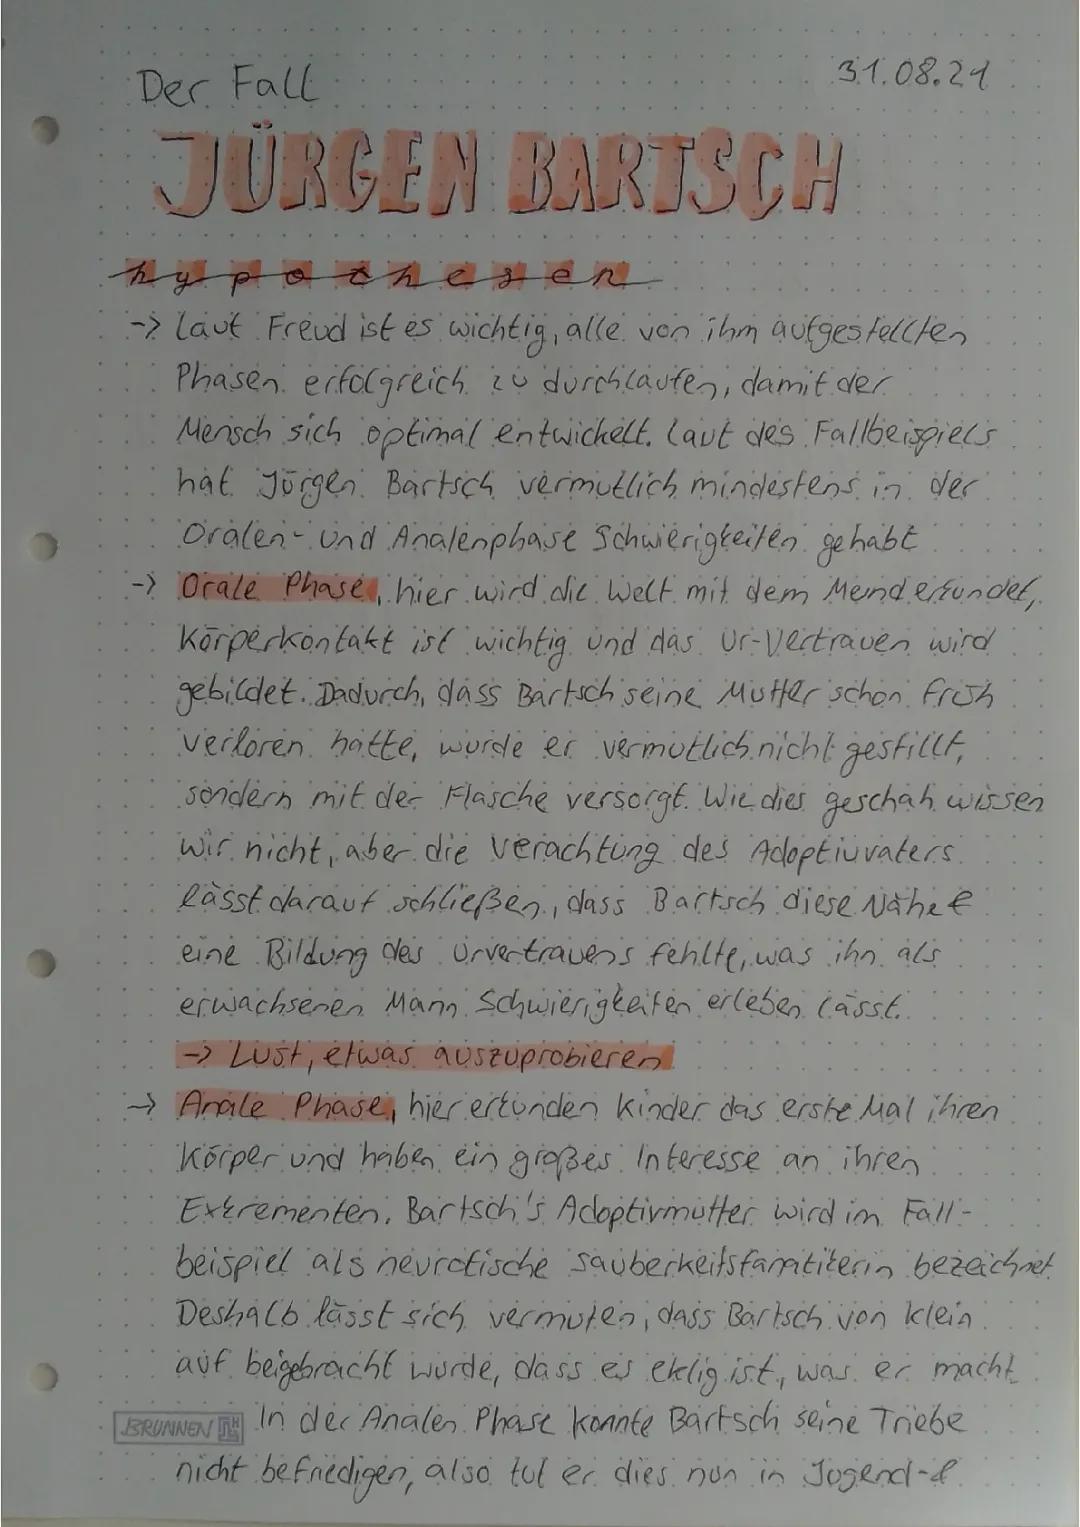 Der Fall
31.08.21
JÜRGEN BARTSCH
hypothesen
-> Laut Freud ist es wichtig, alle von ihm aufgestellten
Phasen erfolgreich zu durchlaufen, damit der
Mensch sich optimal entwickelt. Laut des Fallbeispiels
hat Jürgen Bartsch vermutlich mindestens in der
Oralen- und Analenphase Schwierigkeiten gehabt
-> Orale Phase, hier wird die Welt mit dem Mund erkundet,
Körperkontakt ist wichtig und das Ur-Vertrauen wird
gebildet. Dadurch, dass Bartsch seine Mutter schon früh
verloren hatte, wurde er vermutlich nicht gestillt,
sondern mit der Flasche versorgt. Wie dies geschah wissen
wir nicht, aber die Verachtung des Adoptivvaters
lässt darauf schließen, dass Bartsch diese Nähe &
eine Bildung des Urvertrauens fehlte, was ihn als
erwachsenen Mann Schwierigkeiten erleben lässt.
-> Lust, etwas auszuprobieren
-> Anale Phase, hier erkunden Kinder das erste Mal ihren
Körper und haben ein großes Interesse an ihren
Extrementen. Bartsch's Adoptivmutter wird im Fall-
beispiel als neurotische Sauberkeitsfanatikerin bezeichnet.
Deshalb lässt sich vermuten, dass Bartsch von klein
auf beigebracht wurde, dass es eklig ist, was er macht.
BRUNNEN
In der Analen Phase konnte Bartsch seine Triebe
nicht befriedigen, also tut er dies nun in Jugend- &